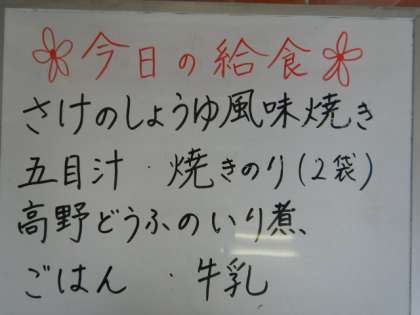 今日の給食
さけのしょうゆ風味焼き
五目汁・焼きのり(2袋)
高野どうふのいり煮
ごはん・牛乳